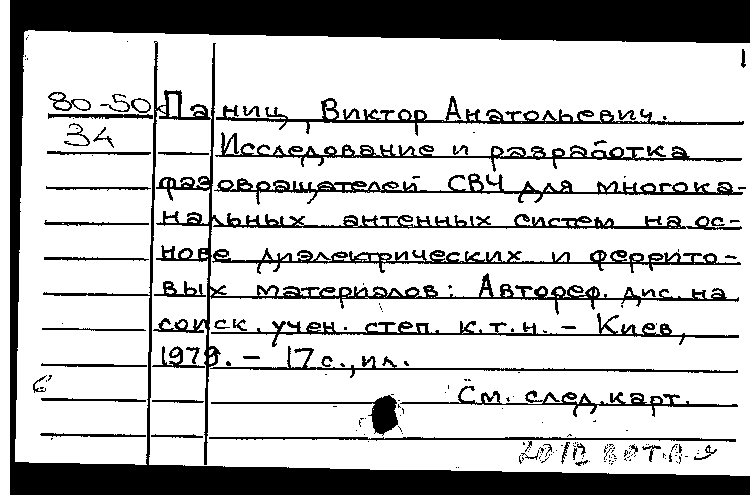 1
80-50 Паниц, Виктор Анатольевич.
34 Исследование и разработка
фазовращателей СВЧ для многока-
нальных антенных систем на ос-
нове диэлектрических и феррито-
вых материалов: Автореф. дис. на
соиск. учен. степ. к.т.н. – Киев,
1979. – 17 с., ил.
См. след. карт.